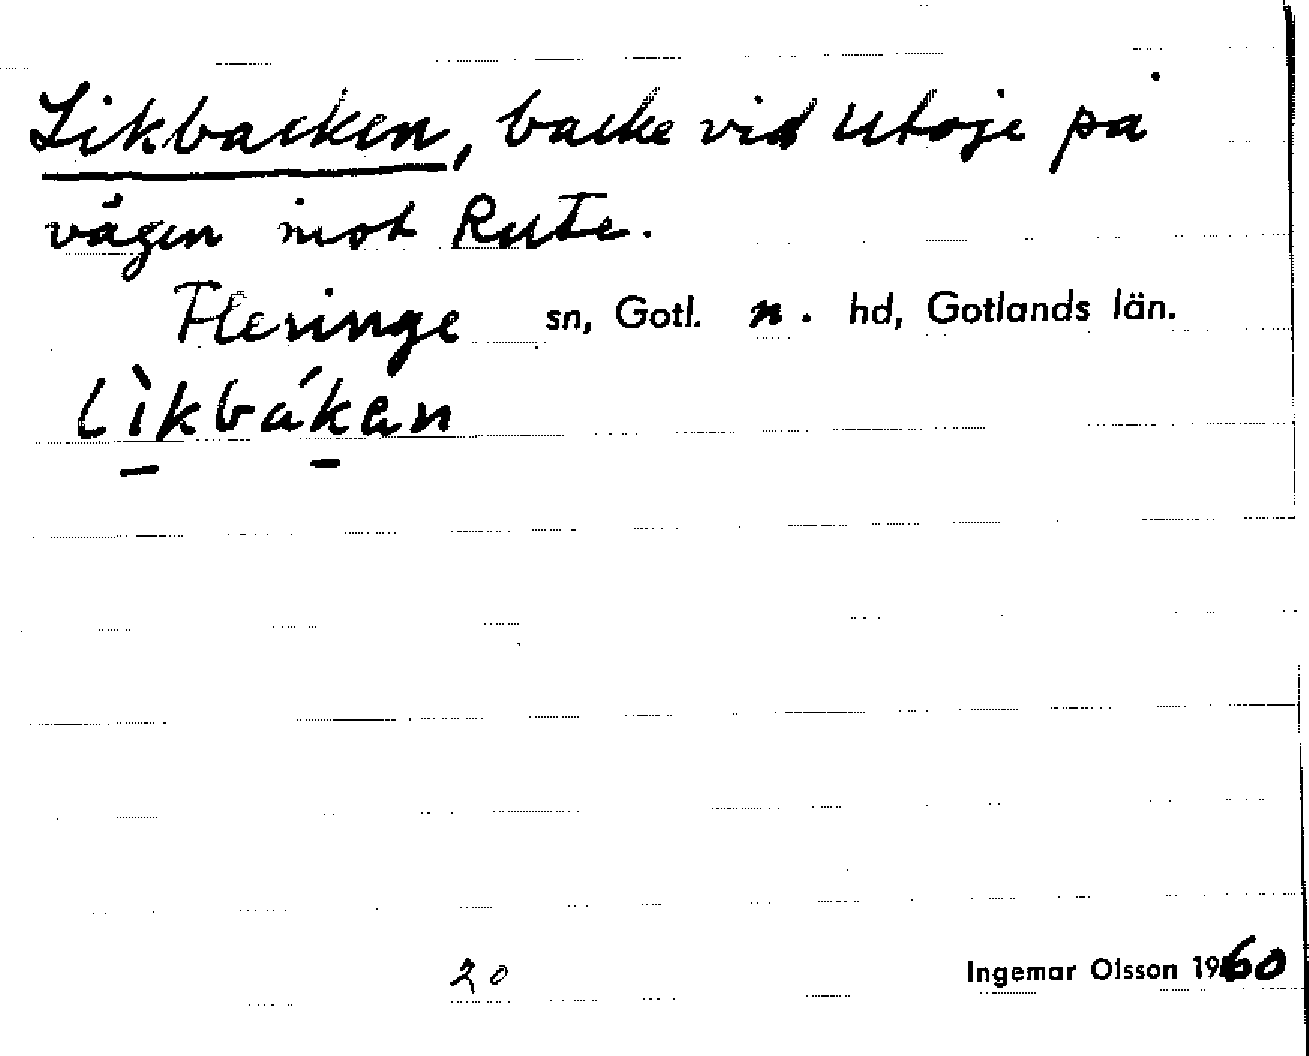 Likbacken, backe vid Utoje på
vägen mot Rute.
Fleringe sn, Gotl. n. hd, Gotlands län.
lìkbákan
20
Ingemar Olsson 1960